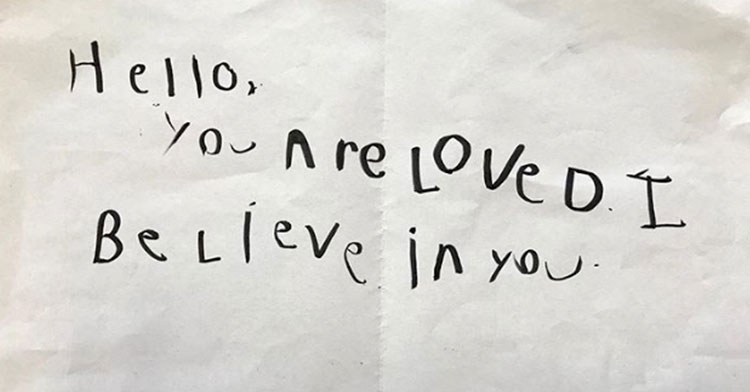 Hello,
You Are LOVeD. I
BeLieve in you.